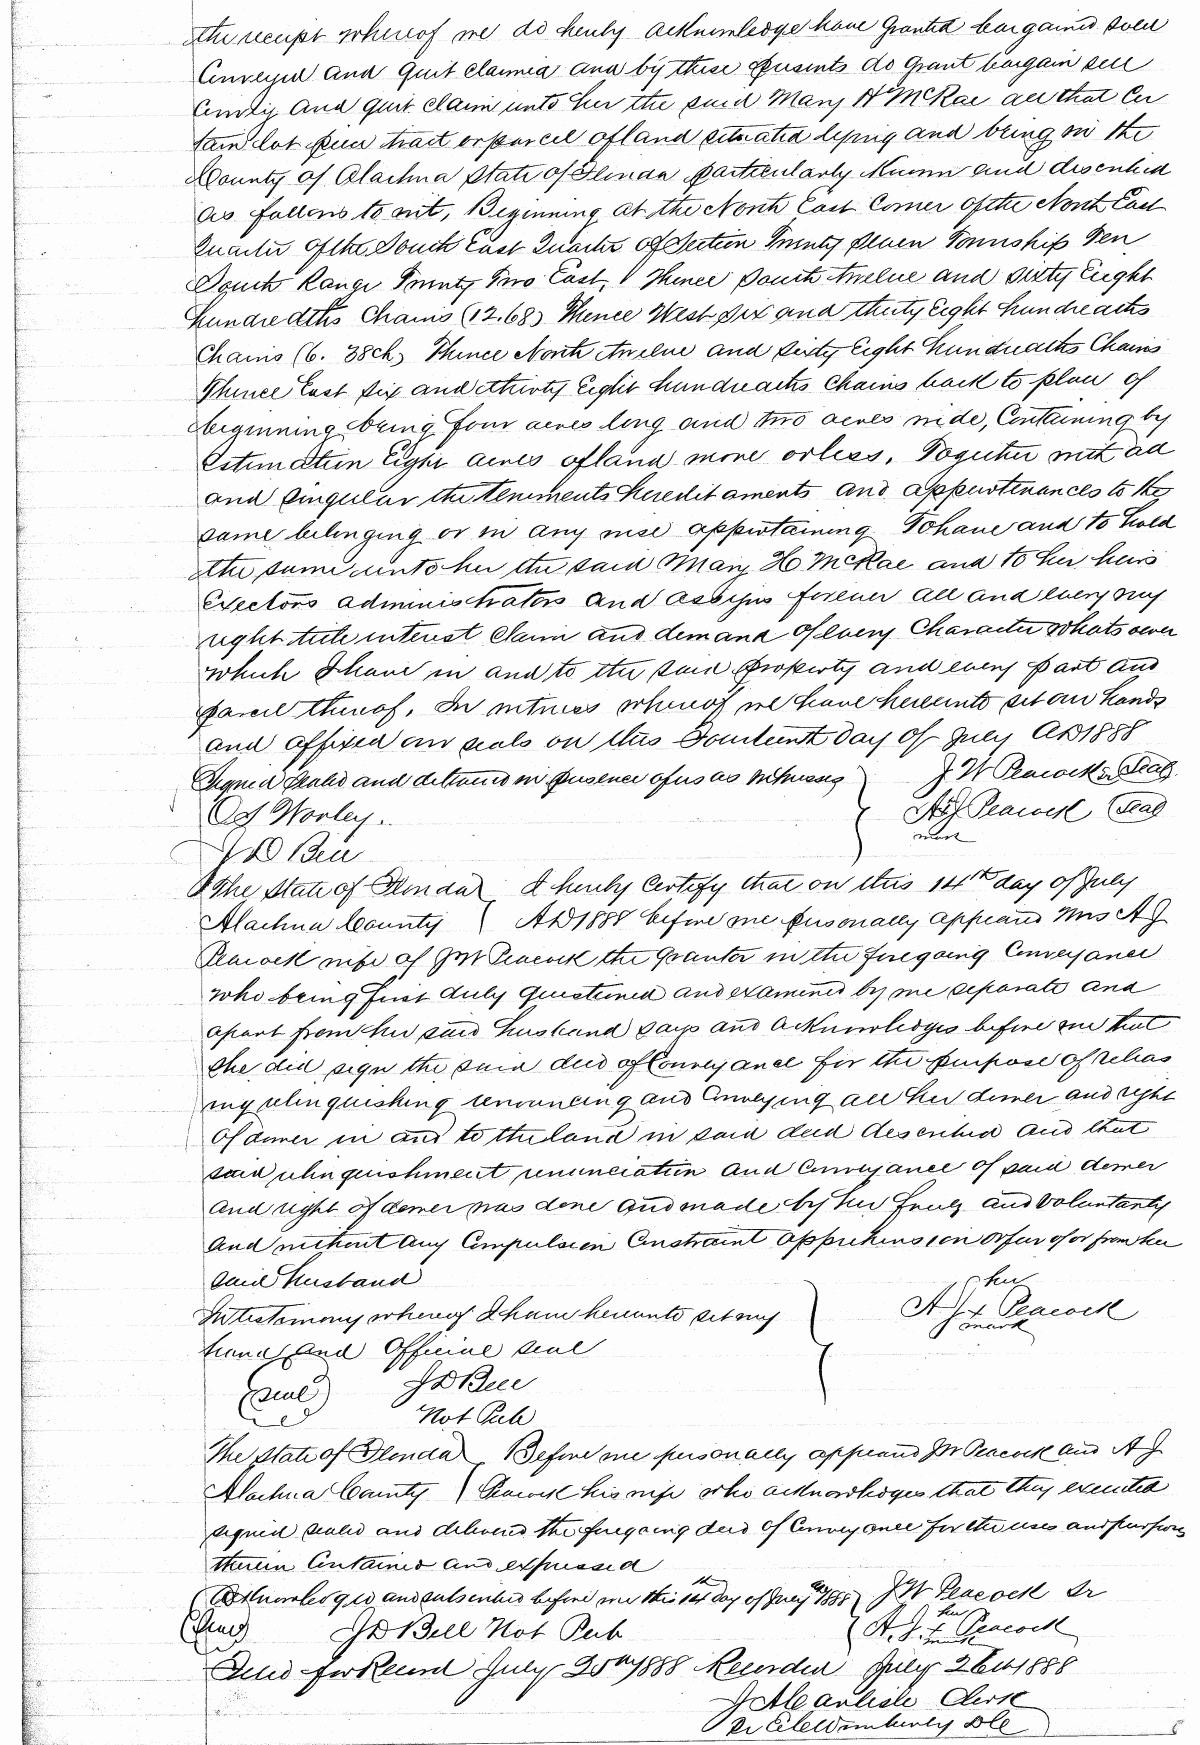 the receipt whereof we do hereby acknowledge have Granted bargained sold
Conveyed and Quit Claimed and by these presents do Grant bargain sell
Convey and Quit Claim unto her the said Mary H McRae all that Cer
tain lot piece tract or parcel of land situated lying and being in the
County of Alachua State of Florida particularly Known and described
as follows to wit, Beginning at the North East Corner of the North East
Quarter of the South East Quarter of Section Twenty Seven Township Ten
South Range Twenty Two East, Thence South twelve and Sixty Eight
hundredths Chains (12.68) Thence West Six and thirty Eight hundredths
Chains (6.38ch) Thence North twelve and Sixty Eight hundredths Chains
Thence East Six and thirty Eight hundredths Chains back to place of
beginning being four acres long and two acres wide, Containing by
Estimation Eight acres of land more or less. Together with all
and Singular the tenements hereditaments and appurtenances to the
same belonging or in any wise appertaining To have and to hold
the same unto her the said Mary H McRae and to her heirs
Exectors administrators and assigns forever all and every my
right title interest Claim and demand of every Character whatsoever
which I have in and to the said property and every part and
parcel thereof. In witness whereof we have hereunto set our hands
and affixed our seals on this Fourteenth day of July AD 1888
Signed Sealed and delivered in presence of us as witnesses
J W Peacock Seal
Worley.
A J Peacock (Seal)
mark
J D Bell
The State of Florida } I hereby Certify that on this 14th day of July
Alachua County } AD 1888 before me personally appeared Mrs A J
Peacock wife of JW Peacock the Grantor in the foregoing Conveyance
who being first duly questioned and examined by me separate and
apart from her said husband says and acknowledges before me that
she did sign the said deed of Conveyance for the purpose of releas
ing relinquishing renouncing and Conveying all her dower and right
of dower in and to the land in said deed described and that
said relinquishment renunciation and Conveyance of said dower
and right of dower was done and made by her freely and voluntarily
and without any Compulsion Constraint apprehension or fear of or from her
said husband
In testimony whereof I have hereunto set my
hand and Official seal
her
A J x Peacock
mark
(Seal) J D Bell
Not Pub
The State of Florida } Before me personally appeared JW Peacock and A J
Alachua County } Peacock his wife who acknowledges that they executed
signed sealed and delivered the foregoing deed of Conveyance for the uses and purposes
therein Contained and expressed
Acknowledged and subscribed before me this 14th day of July AD 1888 } J W Peacock Sr
(Seal) J D Bell Not Pub
her
A. J. x Peacock
mark
Filed for Record July 25th 1888 Recorded July 26th 1888
Clerk
Wimberly DC